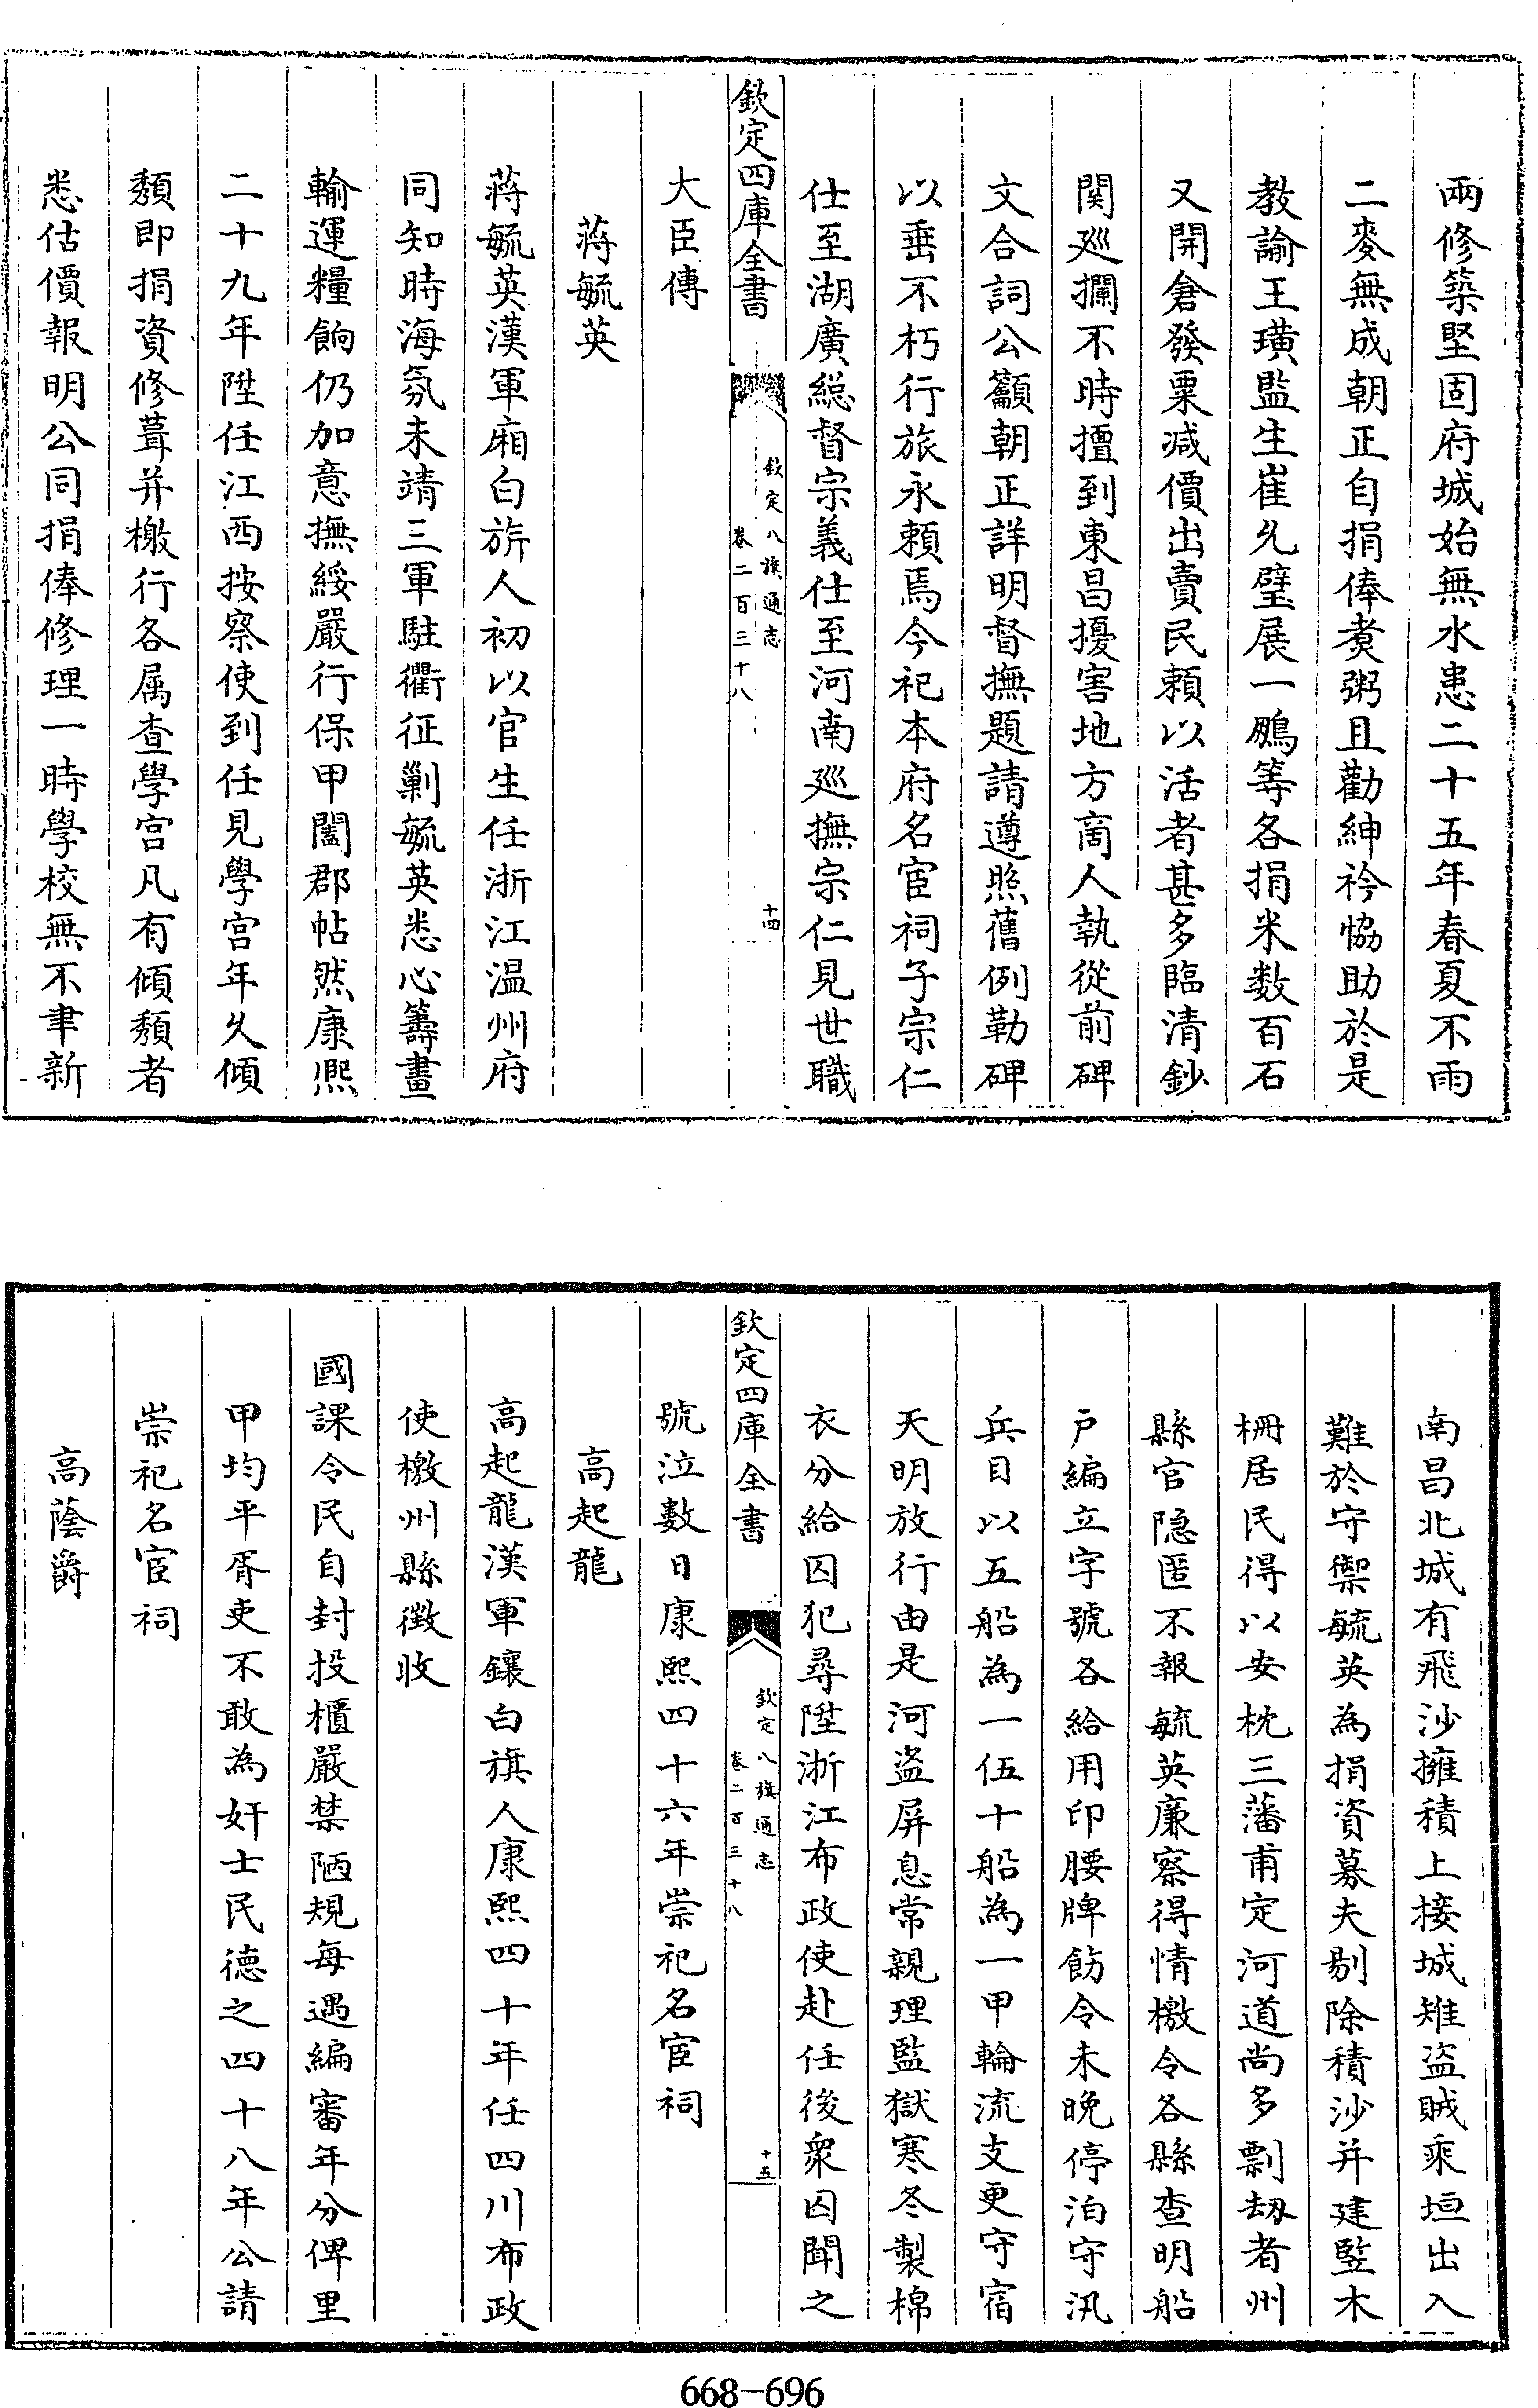 兩修築堅固府城始無水患二十五年春夏不雨
二麥無成朝正自捐俸煑粥且勸紳衿恊助於是
教諭王璜監生崔允璧展一鵬等各捐米数百石
又開倉發粟减價出賣民頼以活者甚多臨清鈔
関廵攔不時擅到東昌擾害地方啇人執從前碑
文合詞公籲朝正詳明督撫題請遵照舊例勒碑
以垂不朽行旅永頼焉今祀本府名宦祠子宗仁
仕至湖廣総督宗義仕至河南廵撫宗仁見世職
欽定四庫全書
欽定八旗通志
卷二百三十八
十四
大臣傳
蔣毓英
蔣毓英漢軍廂白旂人初以官生任浙江温州府
同知時海氛未靖三軍駐衢征剿毓英悉心籌畫
輸運糧餉仍加意撫綏嚴行保甲闔郡帖然康熙
二十九年陞任江西按察使到任見學宫年乆傾
頽即捐資修葺并檄行各属查學宫凡有傾頽者
悉估價報明公同捐俸修理一時學校無不聿新
南昌北城有飛沙擁積上接城雉盗賊乘垣出入
難於守禦毓英為捐資募夫剔除積沙并建竪木
柵居民得以安枕三藩甫定河道尚多剽刼者州
縣官隠匿不報毓英廉察得情檄令各縣查明船
戶編立字號各給用印腰牌飭令未晚停泊守汛
兵目以五船為一伍十船為一甲輪流支更守宿
天明放行由是河盗屏息常親理監獄寒冬製棉
衣分給囚犯尋陞浙江布政使赴任後衆囚聞之
欽定四庫全書
欽定八旗通志
卷二百三十八
十五
號泣數日康熙四十六年崇祀名宦祠
高起龍
高起龍漢軍鑲白旗人康熙四十年任四川布政
使檄州縣徴收
國課令民自封投櫃嚴禁陋規每遇編審年分俾里
甲均平胥吏不敢為奸士民德之四十八年公請
崇祀名宦祠
高蔭爵
668-696